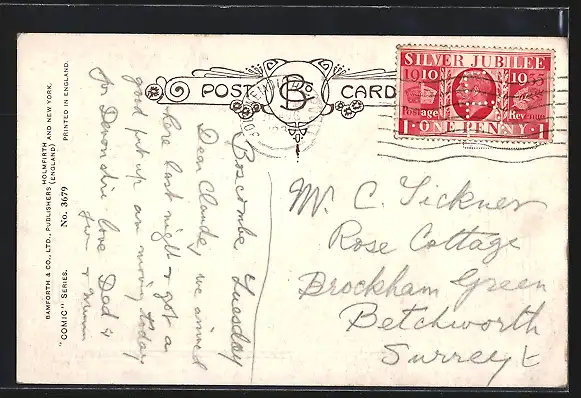 POST CARD
B
SILVER JUBILEE
1910 1935
Postage Revenue
1 · ONE PENNY · 1
Mr. C. Tickner
Rose Cottage
Brockham Green
Betchworth
Surrey
Boscombe Tuesday
Dear Claude, we arrived
here last night & got a
good put up am moving today
for Devon love Dad &
Mum
BAMFORTH & CO., LTD., PUBLISHERS (HOLMFIRTH AND NEW YORK.
(ENGLAND)
PRINTED IN ENGLAND.
"COMIC" SERIES. No. 3679